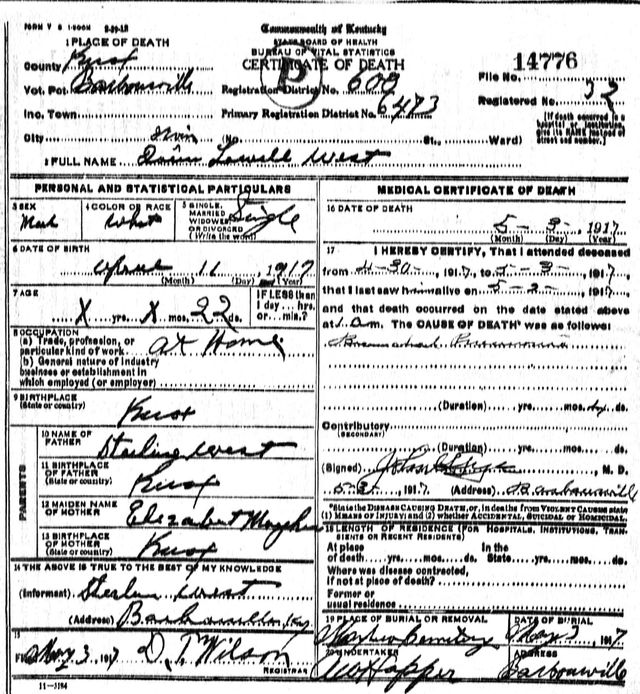 FORM V S 1-500M 5-29-12
Commonwealth of Kentucky
STATE BOARD OF HEALTH
BUREAU OF VITAL STATISTICS
CERTIFICATE OF DEATH
1 PLACE OF DEATH
County Knox
Vot. Pct. Barbourville
Inc. Town
City (No. St., Ward)
P
Registration District No. 608
Primary Registration District No. 6473
14776
File No.
Registered No. 32
[If death occurred in a hospital or institution, give its NAME instead of street and number.]
2 FULL NAME Lowell West
PERSONAL AND STATISTICAL PARTICULARS
3 SEX Male
4 COLOR OR RACE White
5 SINGLE, MARRIED, WIDOWED, OR DIVORCED (Write the word) Single
6 DATE OF BIRTH
April 11, 1917
(Month) (Day) (Year)
7 AGE
X yrs. X mos. 22 ds.
IF LESS than 1 day ... hrs. or ... min.?
8 OCCUPATION
(a) Trade, profession, or particular kind of work At Home
(b) General nature of industry
business or establishment in
which employed (or employer)
9 BIRTHPLACE
(State or country) Knox
PARENTS
10 NAME OF FATHER Sterling West
11 BIRTHPLACE OF FATHER (State or country) Knox
12 MAIDEN NAME OF MOTHER Elizabeth
13 BIRTHPLACE OF MOTHER (State or country) Knox
14 THE ABOVE IS TRUE TO THE BEST OF MY KNOWLEDGE
(Informant) West
(Address) Barbourville, Ky.
15
Filed May 3, 1917 D. T. Wilson
REGISTRAR
11-3184
MEDICAL CERTIFICATE OF DEATH
16 DATE OF DEATH
5-3-, 1917
(Month) (Day) (Year)
17 I HEREBY CERTIFY, That I attended deceased
from 4-30-, 1917, to 5-3-, 1917,
that I last saw him alive on 5-2-, 1917,
and that death occurred on the date stated above
at 1 a.m. The CAUSE OF DEATH* was as follows:
Bronchial Pneumonia
(Duration) yrs. mos. ds.
Contributory
(SECONDARY)
(Duration) yrs. mos. ds.
(Signed) M. D.
5-3-, 1917 (Address) Barbourville
*State the DISEASE CAUSING DEATH, or, in deaths from VIOLENT CAUSES state
(1) MEANS OF INJURY; and (2) whether ACCIDENTAL, SUICIDAL or HOMICIDAL.
18 LENGTH OF RESIDENCE (FOR HOSPITALS, INSTITUTIONS, TRANSIENTS OR RECENT RESIDENTS)
At place of death yrs. mos. ds. In the State yrs. mos. ds.
Where was disease contracted,
if not at place of death?
Former or
usual residence
19 PLACE OF BURIAL OR REMOVAL Cemetery
DATE OF BURIAL May 3, 1917
20 UNDERTAKER Hopper
ADDRESS Barbourville